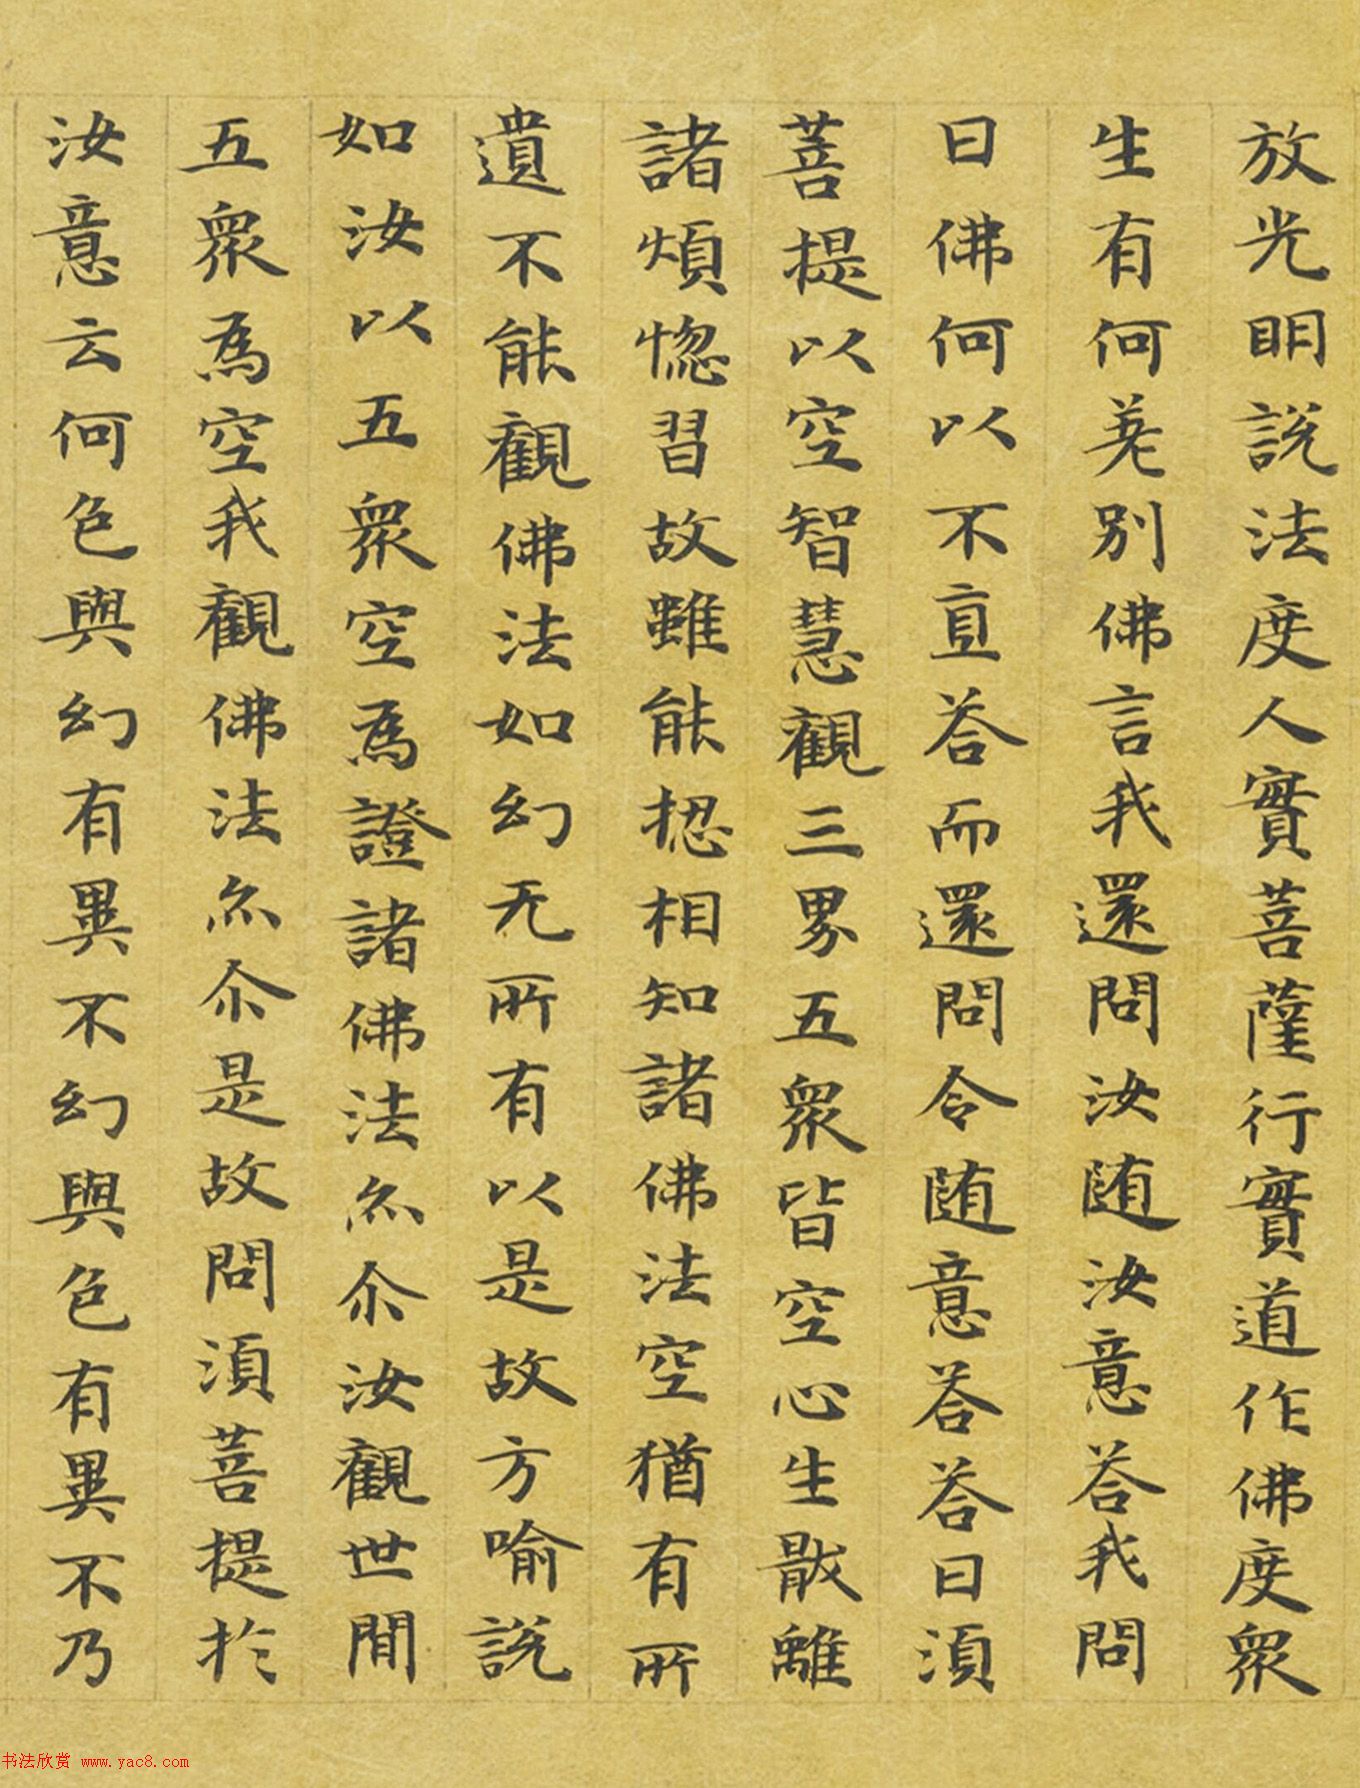 放光明說法度人實菩薩行實道作佛度衆
生有何差別佛言我還問汝随汝意荅我問
曰佛何以不直荅而還問令随意荅荅曰須
菩提以空智慧觀三界五衆皆空心生猒離
諸煩惚習故雖能揔相知諸佛法空猶有所
遺不能觀佛法如幻无所有以是故方喻說
如汝以五衆空為證諸佛法亦尒汝觀世閒
五衆為空我觀佛法亦尒是故問須菩提於
汝意云何色與幻有異不幻與色有異不乃
书法欣赏 www.yac8.com